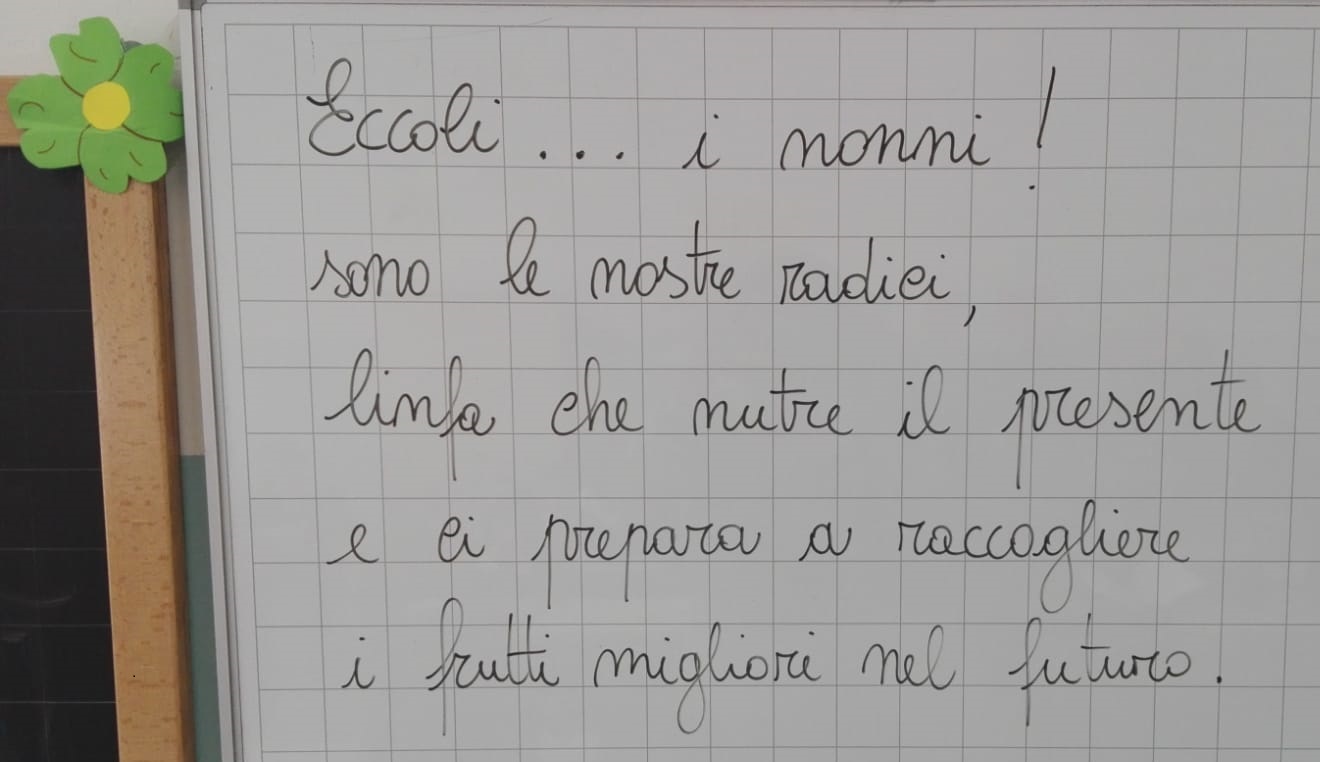 Eccoli... i nonni!
sono le nostre radici,
linfa che nutre il presente
e ci prepara a raccogliere
i frutti migliori nel futuro.